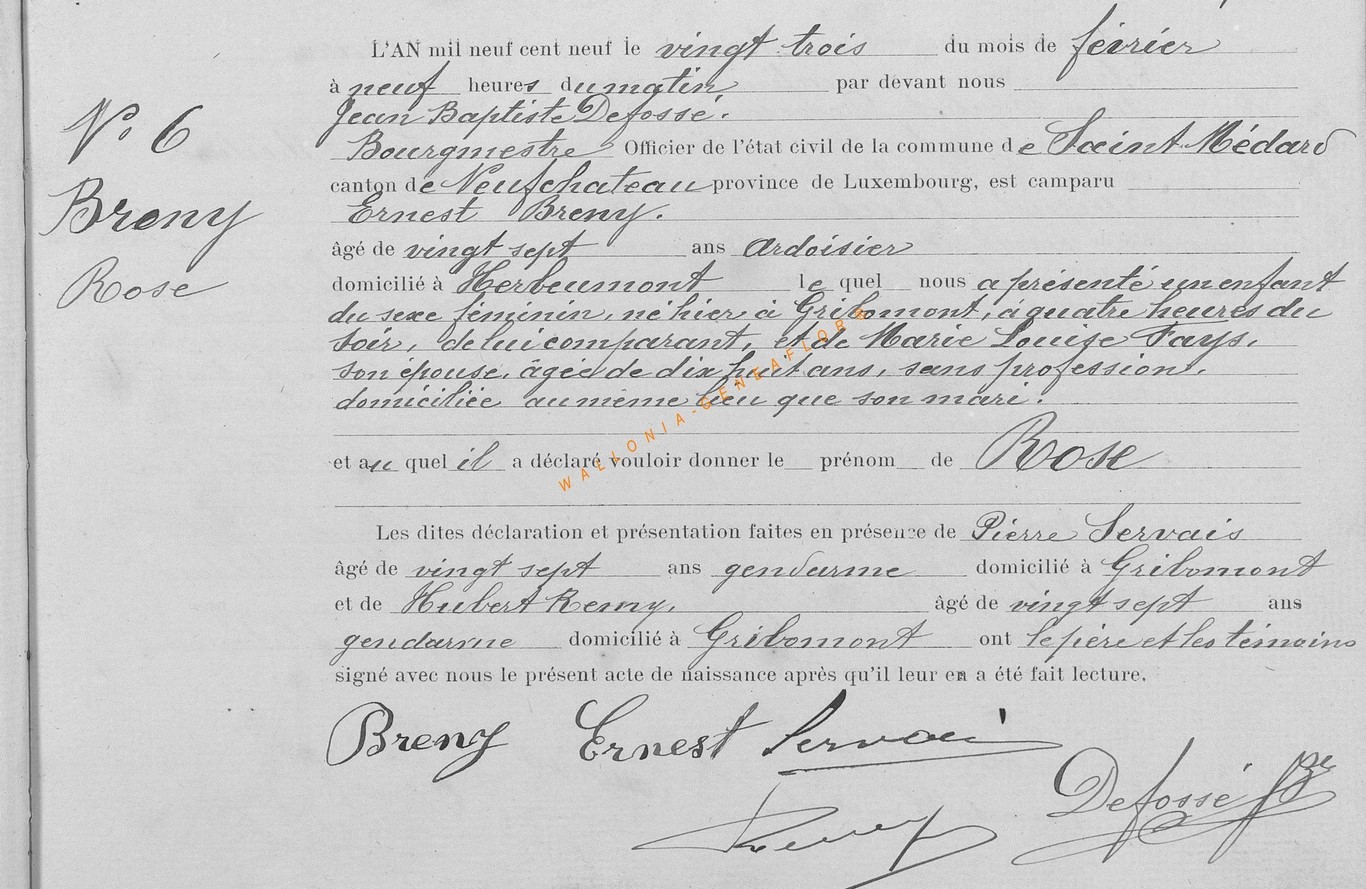 L'AN mil neuf cent neuf le vingt trois du mois de février
à neuf heures du matin par devant nous
Jean Baptiste Defossé.
Bourgmestre Officier de l'état civil de la commune de Saint Médard
canton de Neufchateau province de Luxembourg, est camparu
Ernest Breny.
âgé de vingt sept ans ardoisier
domicilié à Herbeumont le quel nous a présenté un enfant
du sexe féminin, né hier à Gribomont, à quatre heures du
soir, de lui comparant, et de Marie Louise Fays,
son épouse, âgée de dix huit ans, sans profession,
domiciliée au même lieu que son mari.
et au quel il a déclaré vouloir donner le prénom de Rose
Les dites déclaration et présentation faites en présence de Pierre Servais
âgé de vingt sept ans gendarme domicilié à Gribomont
et de Hubert Remy, âgé de vingt sept ans
gendarme domicilié à Gribomont ont le père et les témoins
signé avec nous le présent acte de naissance après qu'il leur en a été fait lecture.
Breny Ernest Servais
Remy Defossé
N° 6
Breny
Rose
WALLONIA-GENEAFLORE